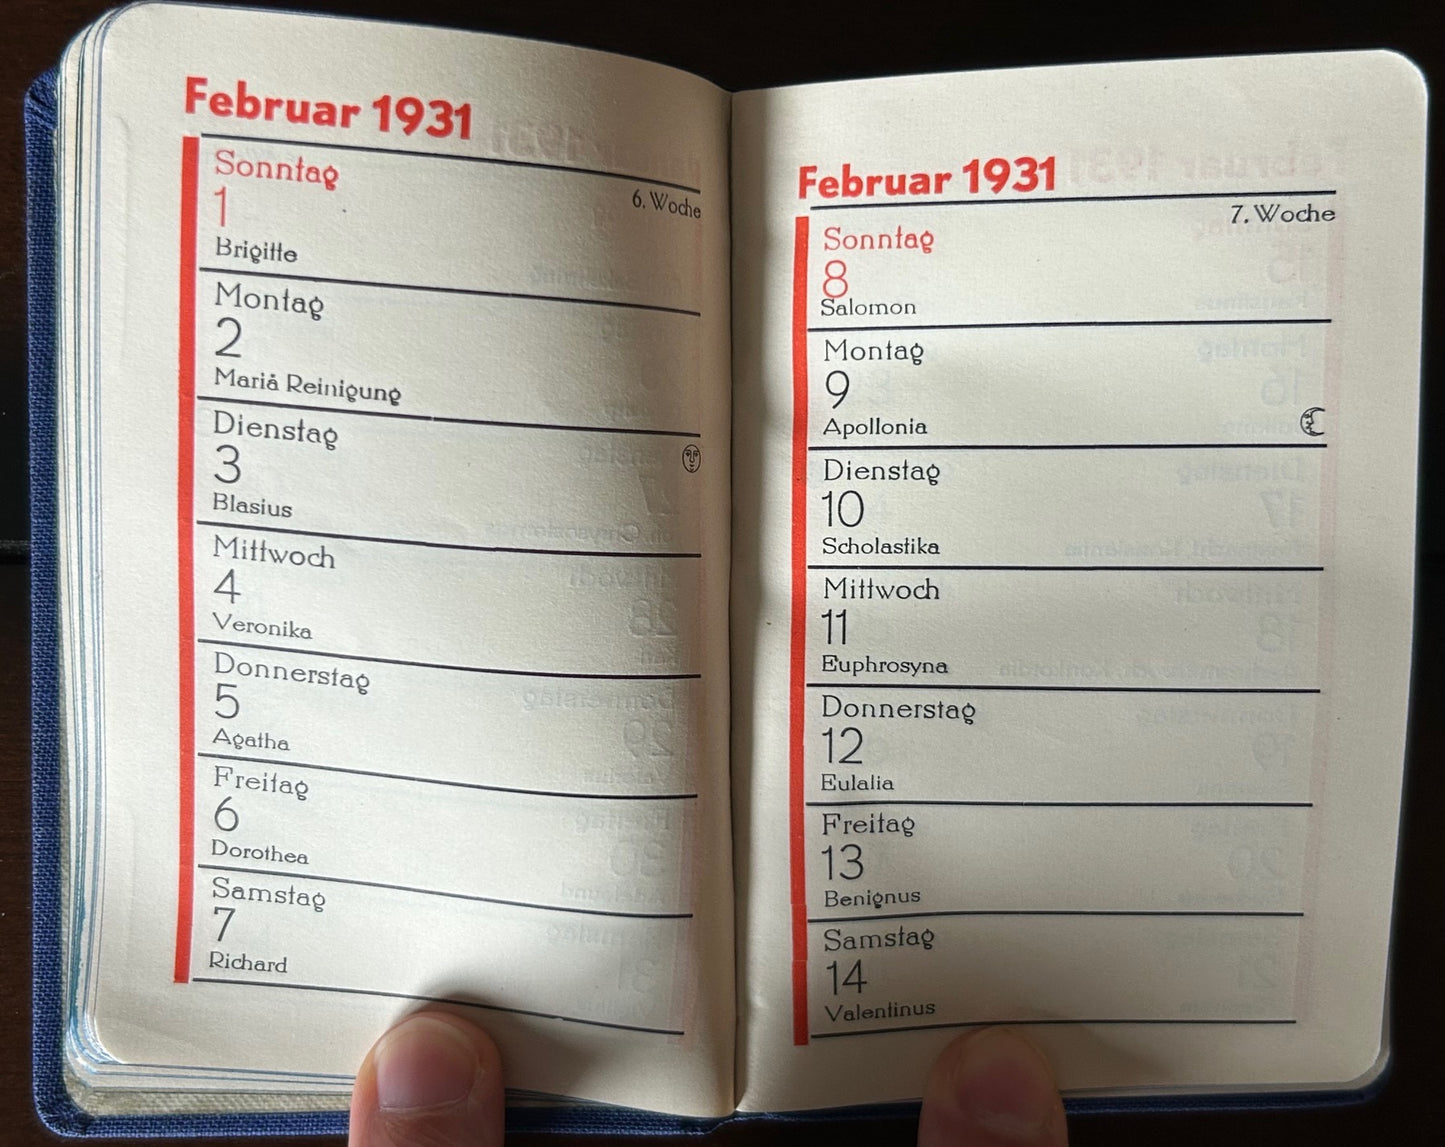 Februar 1931
Sonntag
6. Woche
1
Brigitte
Montag
2
Mariä Reinigung
Dienstag
3
Blasius
Mittwoch
4
Veronika
Donnerstag
5
Agatha
Freitag
6
Dorothea
Samstag
7
Richard
Februar 1931
7. Woche
Sonntag
8
Salomon
Montag
9
Apollonia
Dienstag
10
Scholastika
Mittwoch
11
Euphrosyna
Donnerstag
12
Eulalia
Freitag
13
Benignus
Samstag
14
Valentinus